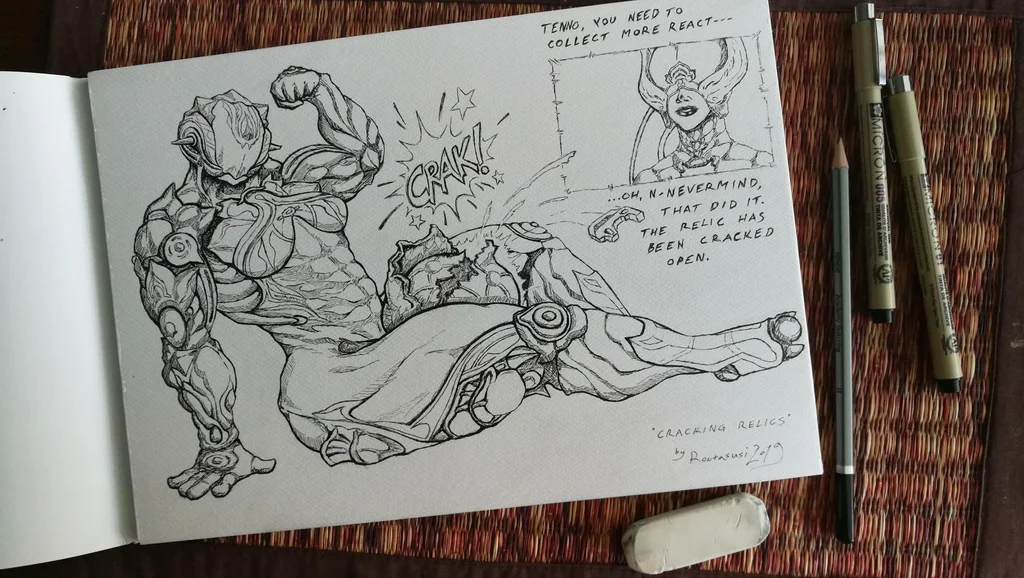 TENNO, YOU NEED TO
COLLECT MORE REACT---
CRAK!
...OH, N-NEVERMIND,
THAT DID IT.
THE RELIC HAS
BEEN CRACKED
OPEN.
"CRACKING RELICS"
by Rautasusi 2019
MICRON 005
MICRON 01